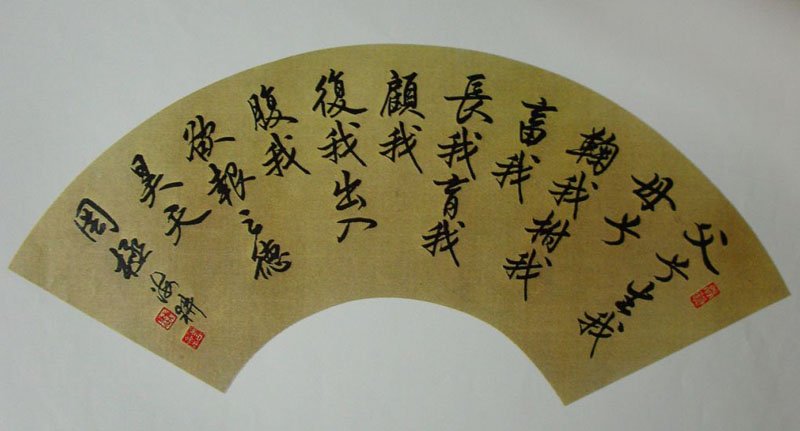 父兮生我
母兮
鞠我拊我
畜我
長我育我
顧我
復我出入
腹我
欲報之德
昊天
罔極